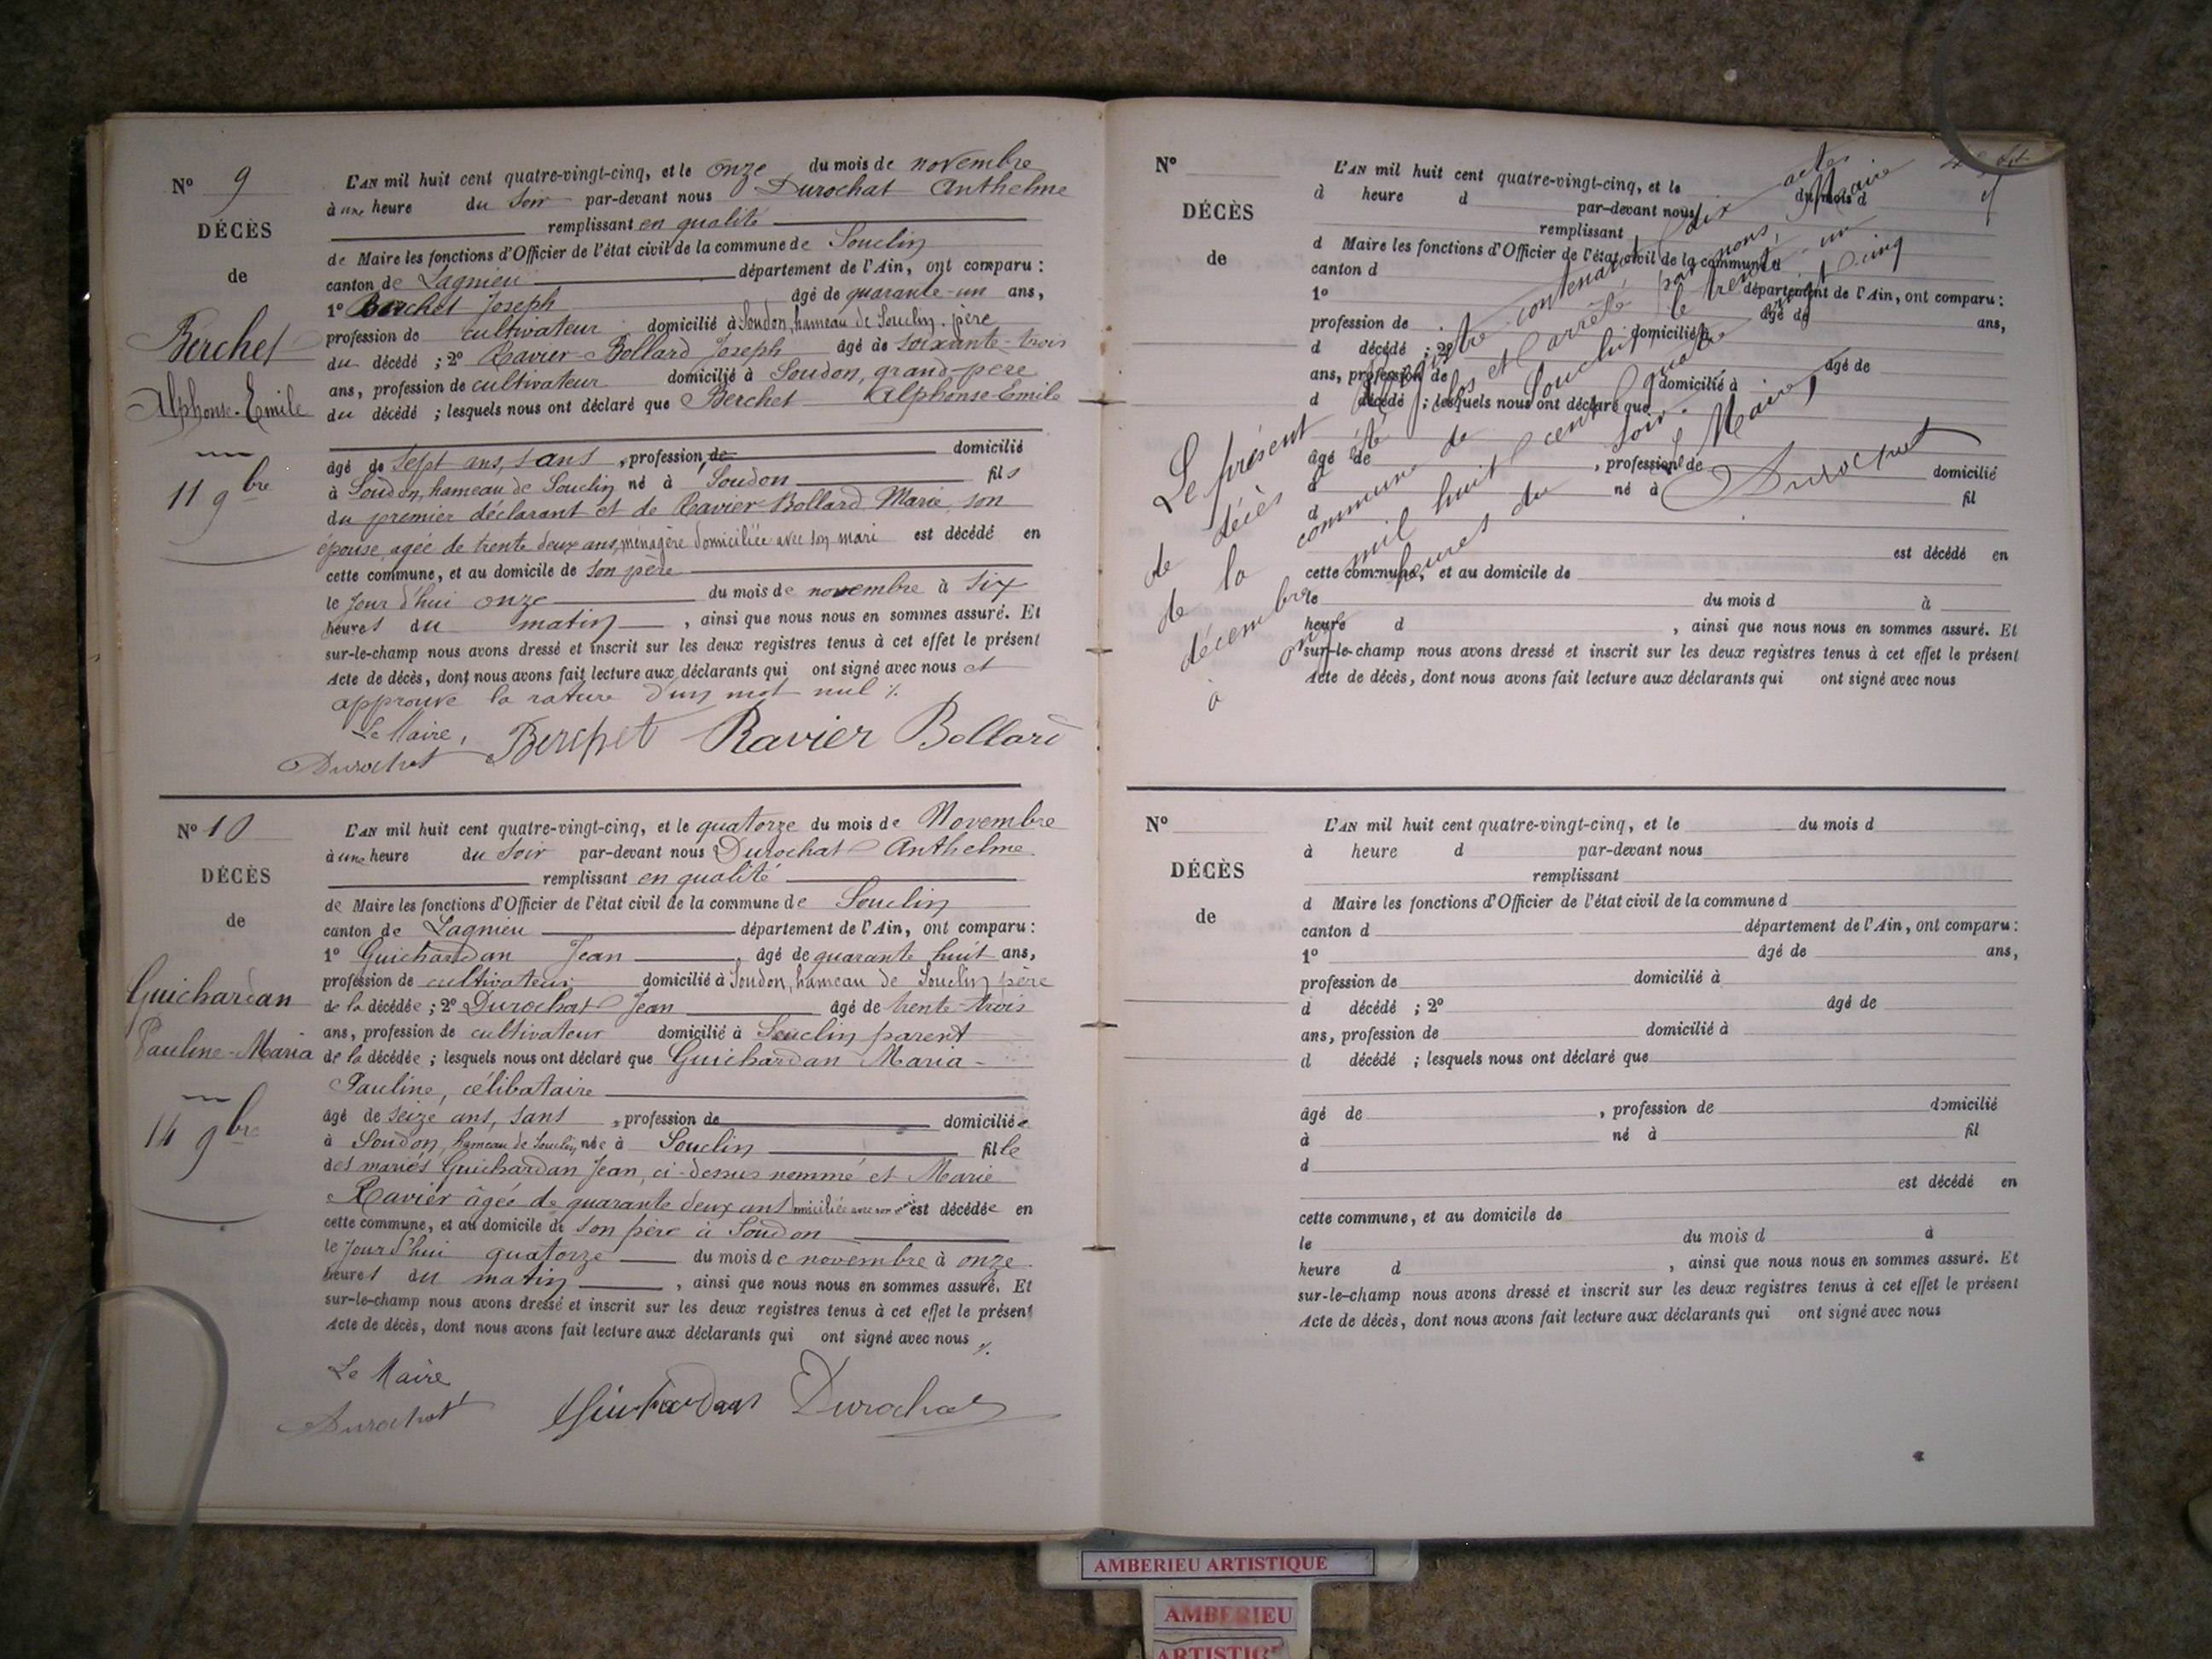 N° 9
DÉCÈS
de
Berchet
Alphonse-Emile
11 9bre
L'AN mil huit cent quatre-vingt-cinq, et le onze du mois de novembre
à une heure du soir par-devant nous Durochat Anthelme
remplissant en qualité
de Maire les fonctions d'Officier de l'état civil de la commune de Souclin
canton de Lagnieu département de l'Ain, ont comparu :
1° Berchet Joseph âgé de quarante-un ans,
profession de cultivateur domicilié à Soudon, hameau de Souclin. père
du décédé ; 2° Ravier-Bollard Joseph âgé de soixante-trois
ans, profession de cultivateur domicilié à Soudon, grand-père
du décédé ; lesquels nous ont déclaré que Berchet Alphonse-Emile
âgé de sept ans, sans , profession de domicilié
à Soudon, hameau de Souclin né à Soudon fils
du premier déclarant et de Ravier-Bollard Marie, son
épouse agée de trente deux ans, ménagère domiciliée avec son mari est décédé en
cette commune, et au domicile de son père
le jour d'hui onze du mois de novembre à six
heures du matin , ainsi que nous nous en sommes assuré. Et
sur-le-champ nous avons dressé et inscrit sur les deux registres tenus à cet effet le présent
Acte de décès, dont nous avons fait lecture aux déclarants qui ont signé avec nous et
approuvé la rature d'un mot nul %.
Le Maire,
Durochat Berchet Ravier Bollard
N° 10
DÉCÈS
de
Guichardan
Pauline-Maria
14 9bre
L'AN mil huit cent quatre-vingt-cinq, et le quatorze du mois de Novembre
à une heure du soir par-devant nous Durochat Anthelme
remplissant en qualité
de Maire les fonctions d'Officier de l'état civil de la commune de Souclin
canton de Lagnieu département de l'Ain, ont comparu :
1° Guichardan Jean âgé de quarante huit ans,
profession de cultivateur domicilié à Soudon, hameau de Souclin père
de la décédée ; 2° Durochat Jean âgé de trente-trois
ans, profession de cultivateur domicilié à Souclin parent
de la décédée ; lesquels nous ont déclaré que Guichardan Maria-
Pauline, célibataire
âgé de seize ans, sans , profession de domiciliée
à Soudon, hameau de Souclin, née à Souclin fille
des mariés Guichardan Jean, ci-dessus nommé et Marie
Ravier âgée de quarante deux ans domiciliée avec son mari est décédée en
cette commune, et au domicile de son père à Soudon
le jour d'hui quatorze du mois de novembre à onze
heures du matin , ainsi que nous nous en sommes assuré. Et
sur-le-champ nous avons dressé et inscrit sur les deux registres tenus à cet effet le présent
Acte de décès, dont nous avons fait lecture aux déclarants qui ont signé avec nous %.
Le Maire
Durochat Guichardan Durochat
N°
DÉCÈS
de
L'AN mil huit cent quatre-vingt-cinq, et le du mois d
à heure d par-devant nous
remplissant
d Maire les fonctions d'Officier de l'état civil de la commune d
canton d département de l'Ain, ont comparu :
1° âgé de ans,
profession de domicilié à
d décédé ; 2° âgé de
ans, profession de domicilié à
d décédé ; lesquels nous ont déclaré que
âgé de , profession de domicilié
à né à fil
d
est décédé en
cette commune, et au domicile de
le du mois d à
heure d , ainsi que nous nous en sommes assuré. Et
sur-le-champ nous avons dressé et inscrit sur les deux registres tenus à cet effet le présent
Acte de décès, dont nous avons fait lecture aux déclarants qui ont signé avec nous
Le présent registre contenant dix actes
de décès a été clos et arrêté par nous, Maire
de la commune de Souclin, le trente-un
décembre mil huit cent quatre vingt cinq
à onze heures du soir.
Le Maire,
Durochat
N°
DÉCÈS
de
L'AN mil huit cent quatre-vingt-cinq, et le du mois d
à heure d par-devant nous
remplissant
d Maire les fonctions d'Officier de l'état civil de la commune d
canton d département de l'Ain, ont comparu :
1° âgé de ans,
profession de domicilié à
d décédé ; 2° âgé de
ans, profession de domicilié à
d décédé ; lesquels nous ont déclaré que
âgé de , profession de domicilié
à né à fil
d
est décédé en
cette commune, et au domicile de
le du mois d à
heure d , ainsi que nous nous en sommes assuré. Et
sur-le-champ nous avons dressé et inscrit sur les deux registres tenus à cet effet le présent
Acte de décès, dont nous avons fait lecture aux déclarants qui ont signé avec nous
AMBERIEU ARTISTIQUE
AMBERIEU